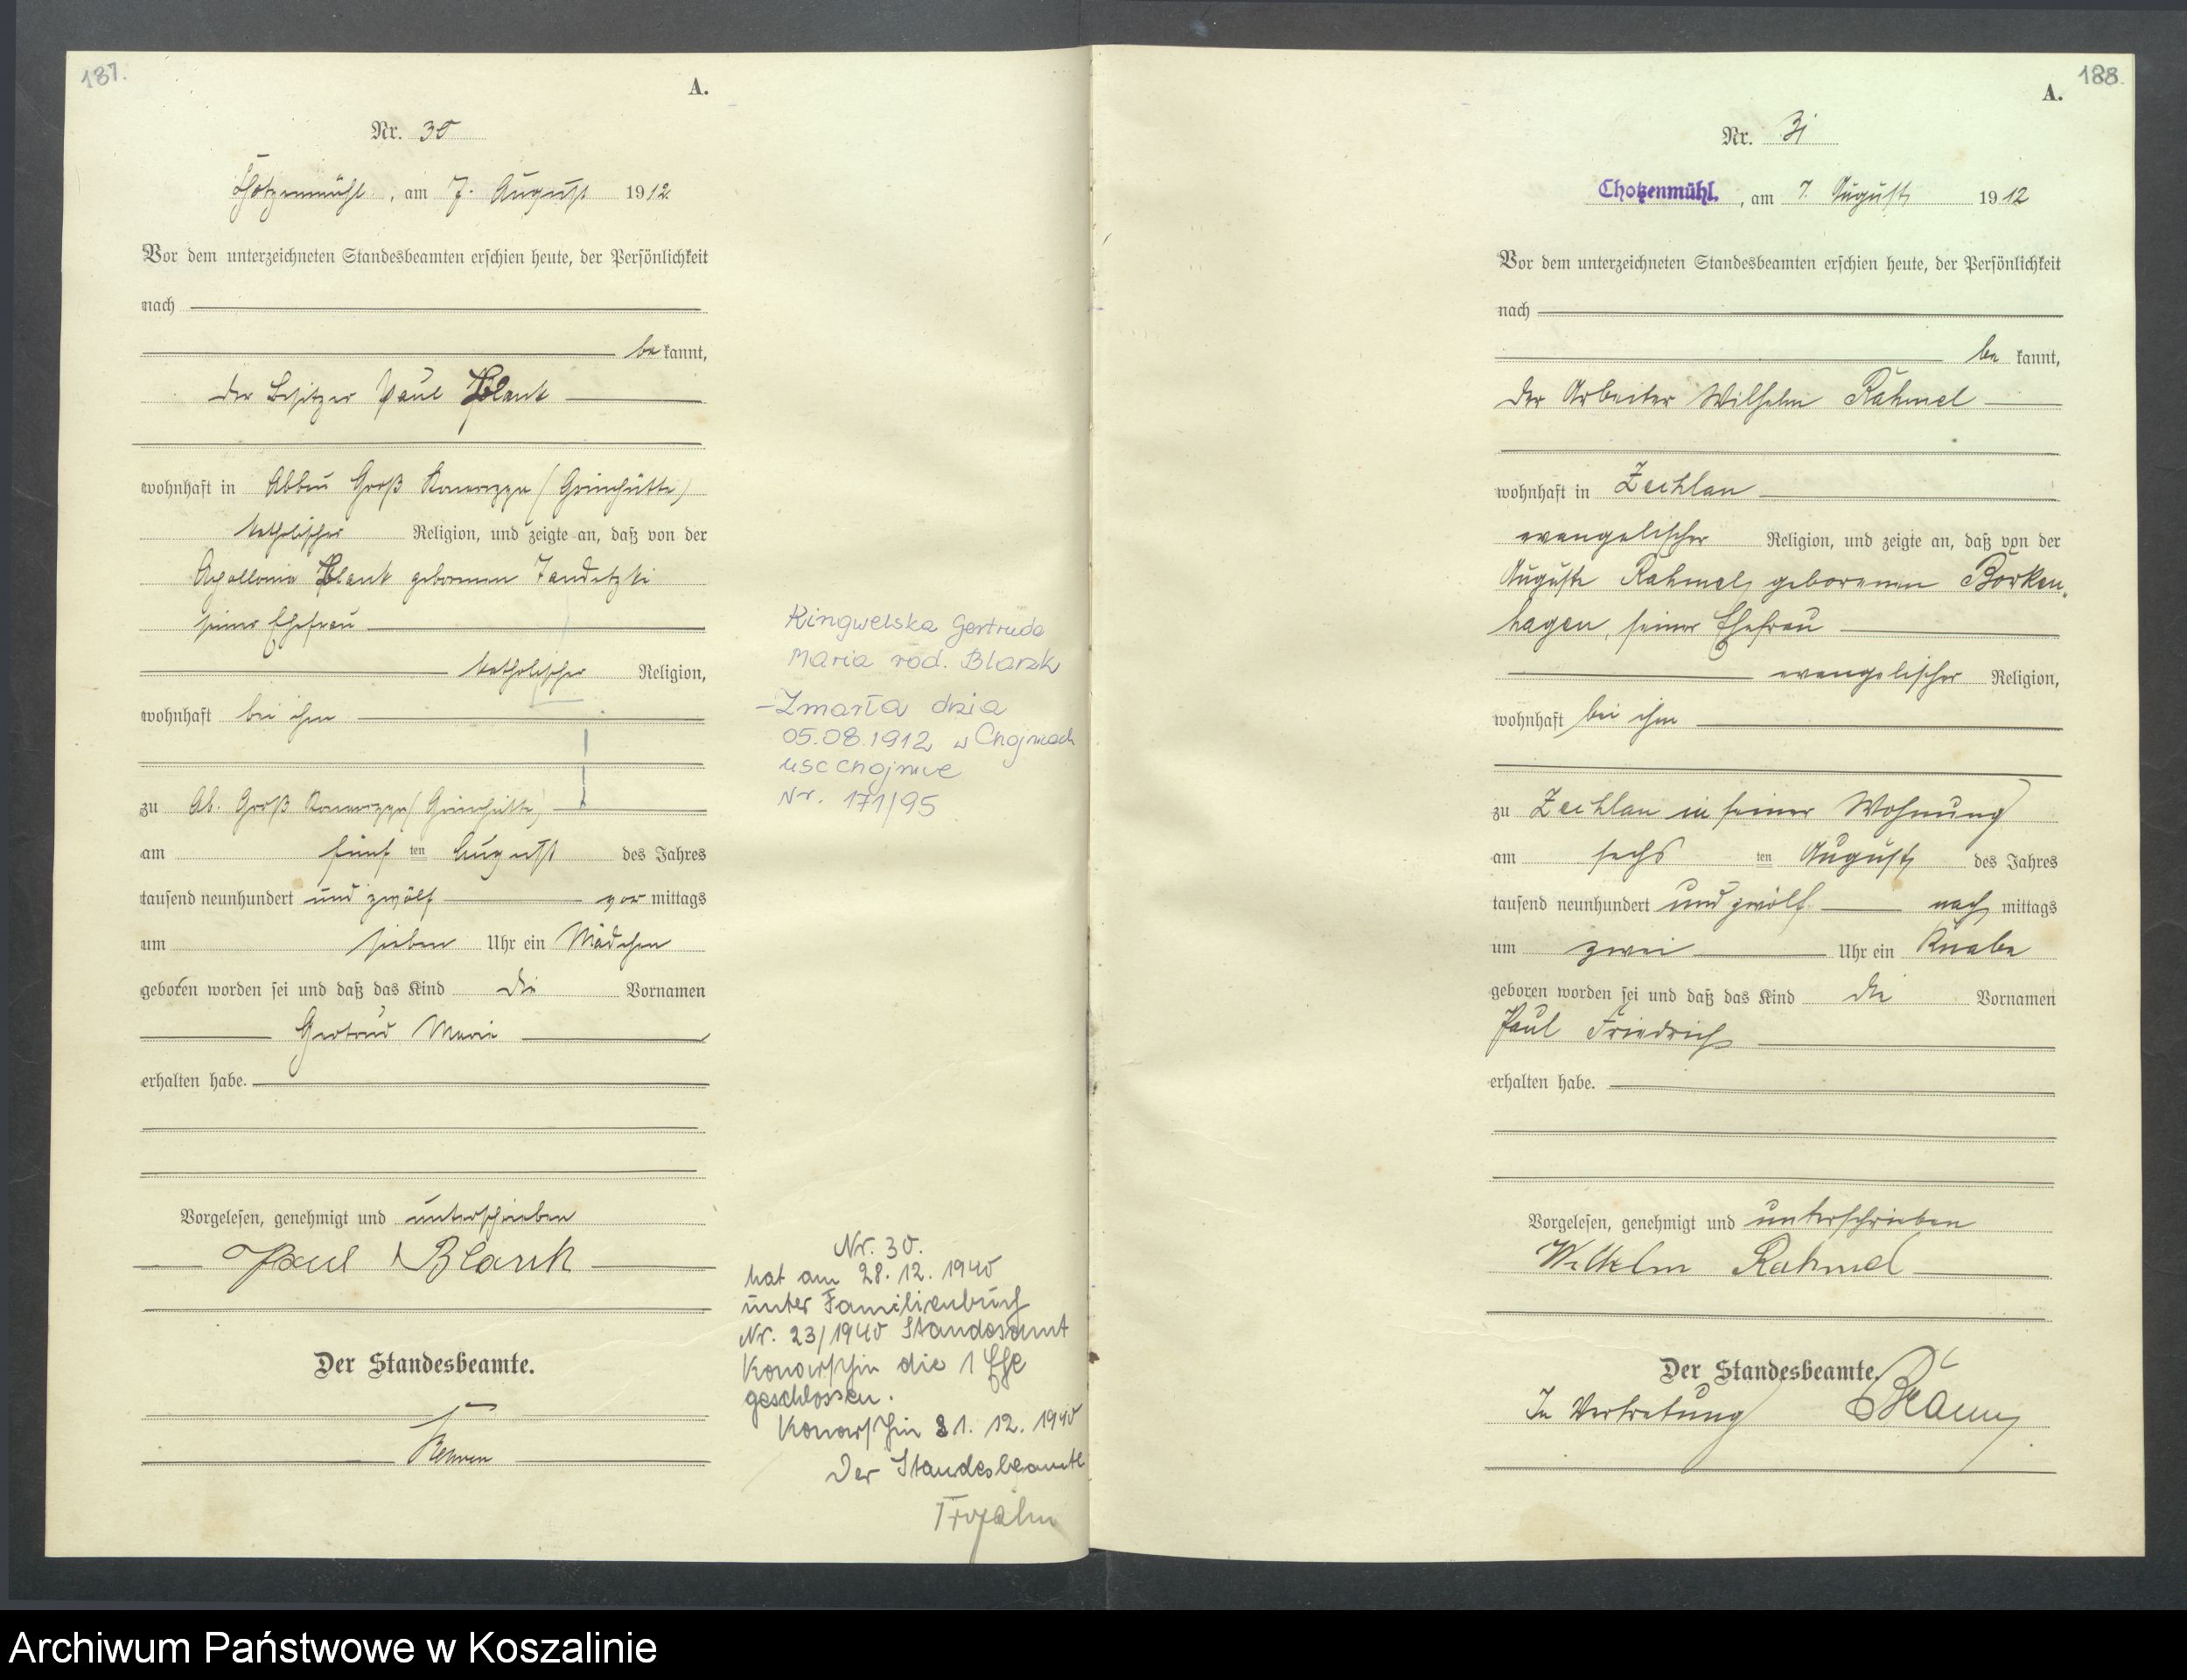 187.
A.
Nr. 30
Chotzenmühl, am 7. August 1912.
Vor dem unterzeichneten Standesbeamten erschien heute, der Persönlichkeit
nach
be kannt,
der Besitzer Paul Blank
wohnhaft in Abbau Groß Konarczyn (Grünhütte)
katholischer Religion, und zeigte an, daß von der
Apollonia Blank geborenen Jandetzki
seiner Ehefrau
katholischer Religion,
wohnhaft bei ihm
zu Ab. Groß Konarczyn (Grünhütte)
am fünf ten August des Jahres
tausend neunhundert und zwölf vor mittags
um sieben Uhr ein Mädchen
geboren worden sei und daß das Kind die Vornamen
Gertrud Marie
erhalten habe.
Vorgelesen, genehmigt und unterschrieben
Paul Blank
Der Standesbeamte.
Kingwelska Gertruda
Maria rod. Blank
-Zmarła dnia
05.08.1912 w Chojnicach
USC Chojnice
Nr. 171/95
Nr. 30.
hat am 28. 12. 1940
unter Familienbuch
Nr. 23/1940 Standesamt
Konarschin die 1 Ehe
geschlossen.
Konarschin 31. 12. 1940
Der Standesbeamte
188.
A.
Nr. 31
Chotzenmühl. , am 7. August 1912
Vor dem unterzeichneten Standesbeamten erschien heute, der Persönlichkeit
nach
be kannt,
der Arbeiter Wilhelm Rahmel
wohnhaft in Zechlau
evangelischer Religion, und zeigte an, daß von der
Auguste Rahmel, geborenen Borken-
hagen, seiner Ehefrau
evangelischer Religion,
wohnhaft bei ihm
zu Zechlau in seiner Wohnung
am sechs ten August des Jahres
tausend neunhundert und zwölf nach mittags
um zwei Uhr ein Knabe
geboren worden sei und daß das Kind die Vornamen
Paul Friedrich
erhalten habe.
Vorgelesen, genehmigt und unterschrieben
Wilhelm Rahmel
Der Standesbeamte.
In Vertretung
Archiwum Państwowe w Koszalinie